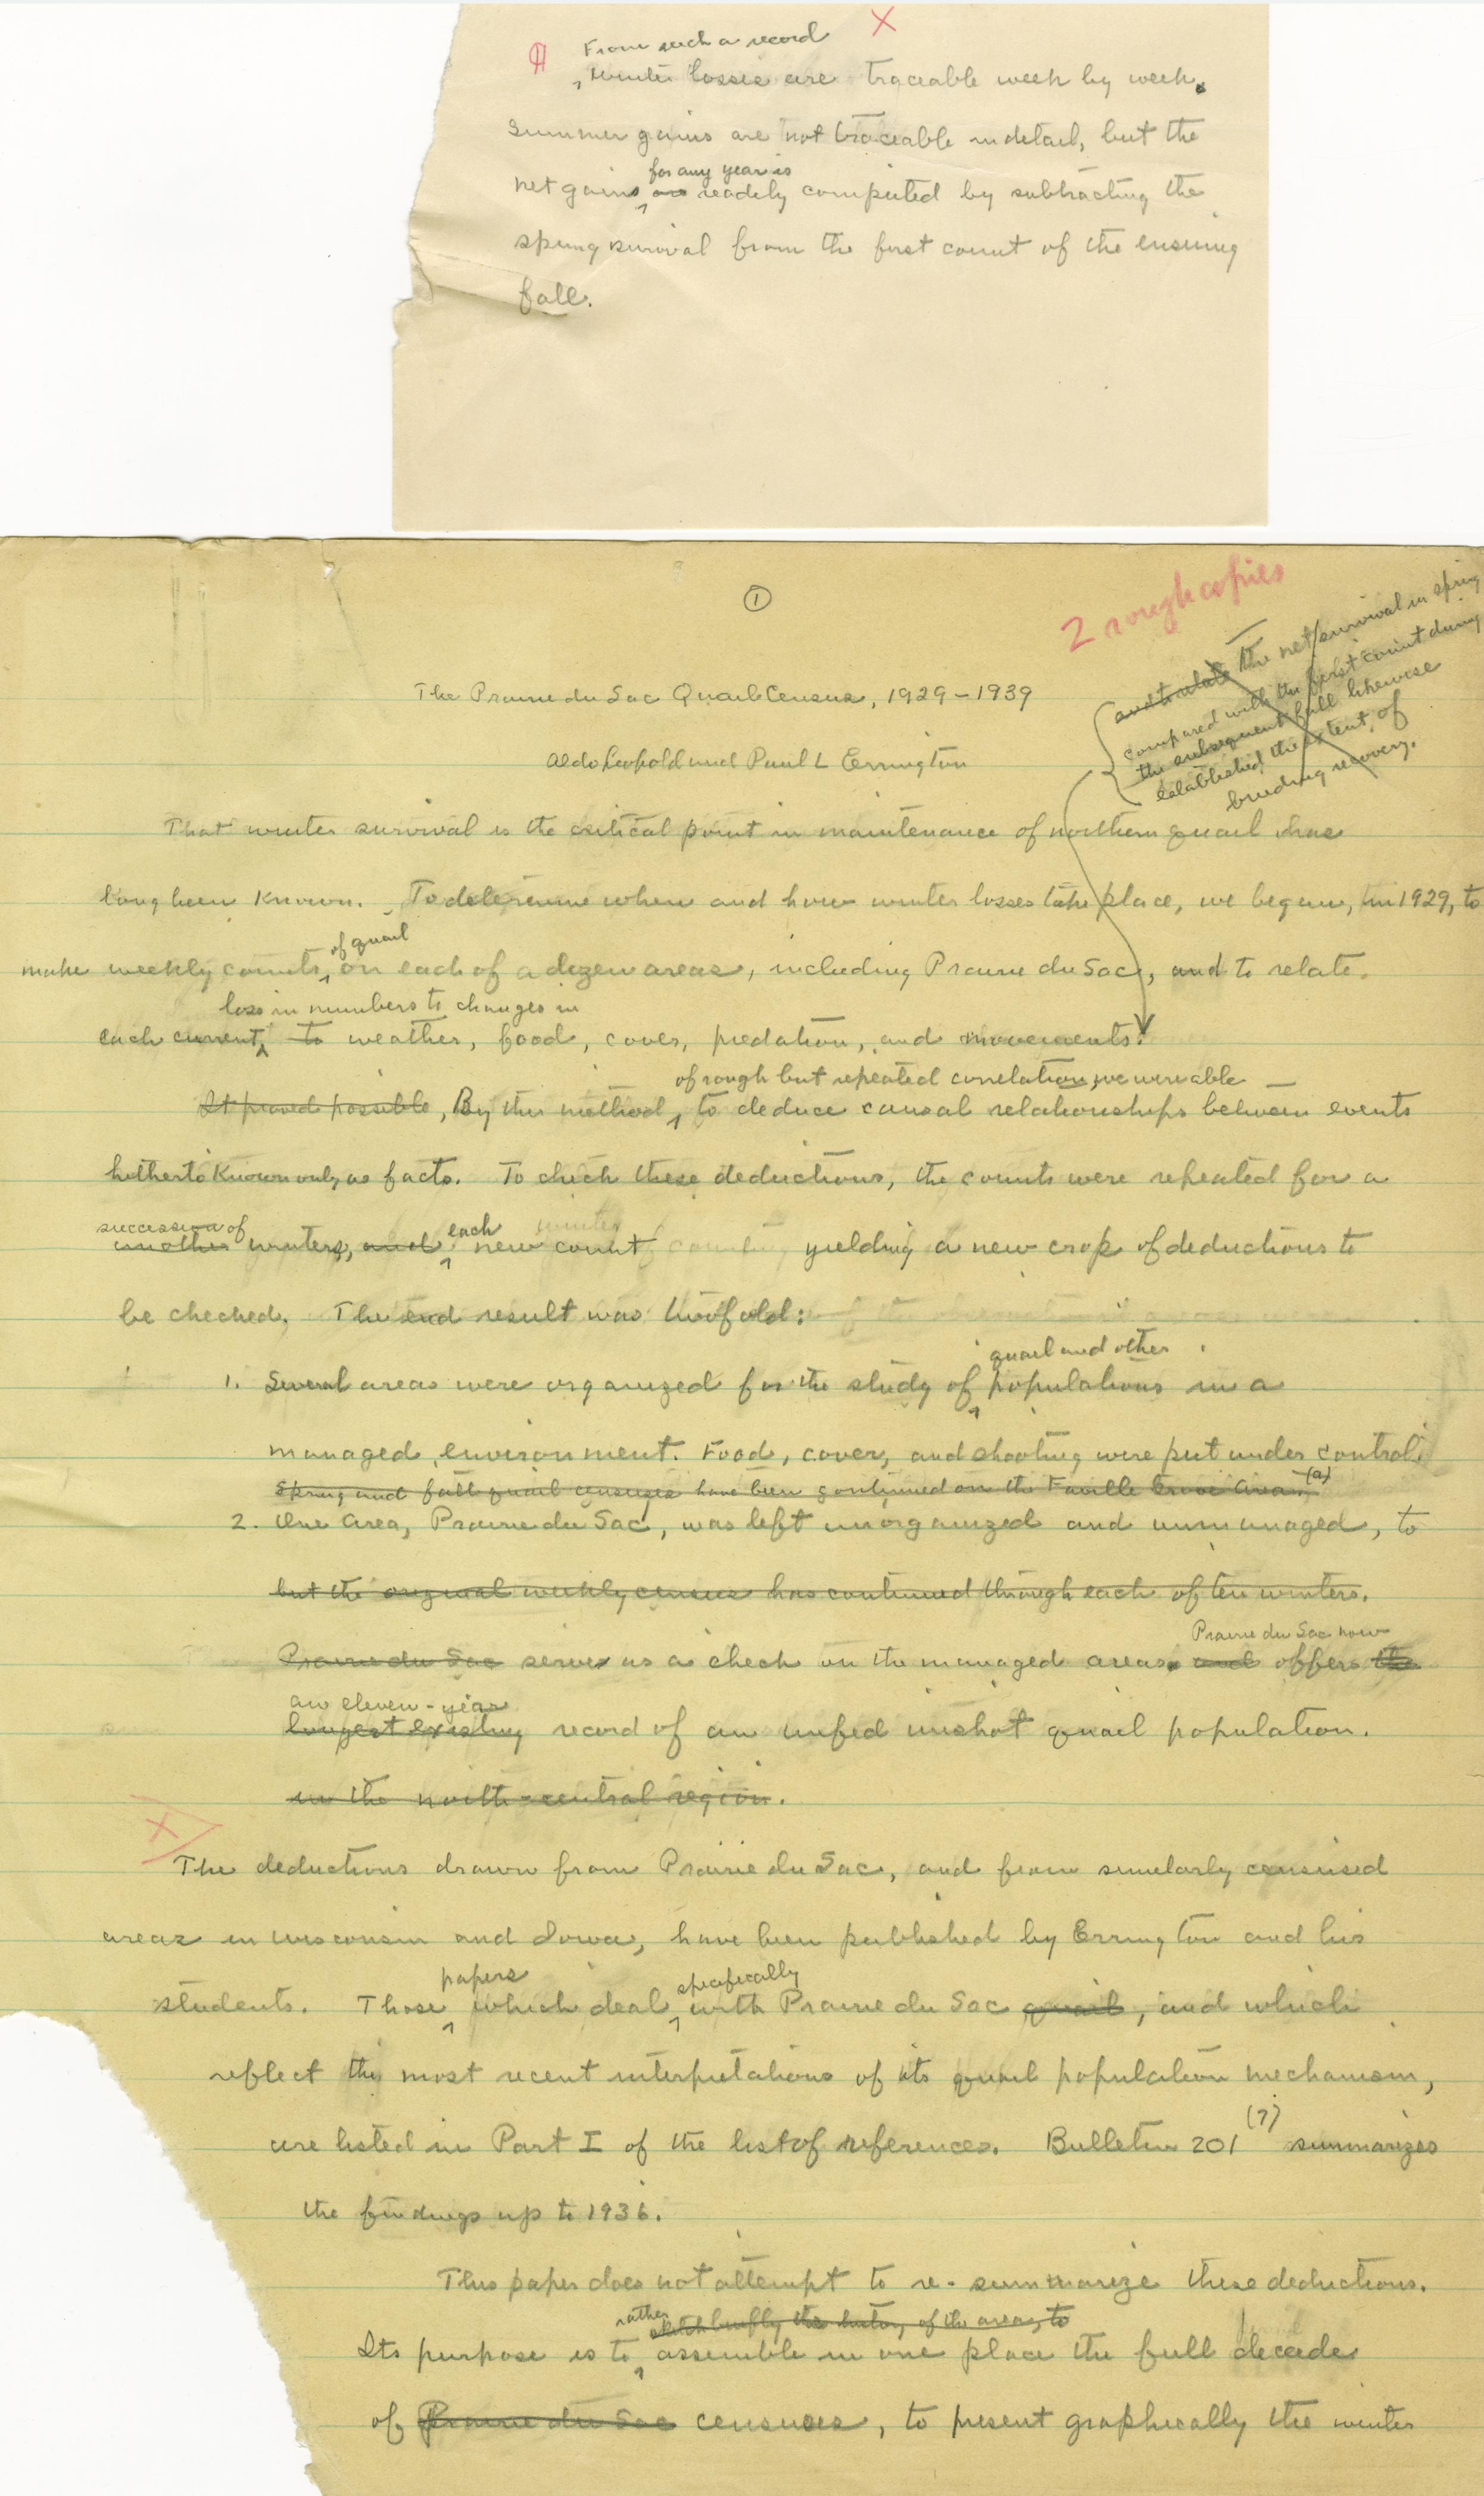 ¶ From such a record X
Winter losses are traceable week by week.
Summer gains are not traceable in detail, but the
for any year is
net gains are readily computed by subtracting the
spring survival from the first count of the ensuing
fall.
1
2 rough copies
and to relate The net survival in spring
compared with the first count during
the subsequent fall likewise
established the extent of
breeding recovery.
The Prairie du Sac Quail Census, 1929-1939
Aldo Leopold and Paul L Errington
That winter survival is the critical point in maintenance of northern quail has
long been known. To determine when and how winter losses take place, we began, in 1929, to
of quail
make weekly counts on each of a dozen areas, including Prairie du Sac, and to relate
loss in numbers to changes in
each current to weather, food, cover, predation, and movements.
of rough but repeated correlation, we were able
It proved possible, By this method to deduce causal relationships between events
hitherto known only as facts. To check these deductions, the counts were repeated for a
succession of each winter
another winters, and new count yielding a new crop of deductions to
be checked. The end result was twofold:
quail and other
1. Several areas were organized for the study of populations in a
managed environment. Food, cover, and shooting were put under control.
Spring and fall quail censuses have been continued on the Faville Grove Area (a)
2. One area, Prairie du Sac, was left unorganized and unmanaged, to
but the original weekly census has continued through each of ten winters.
Prairie du Sac now
Prairie du Sac serves as a check on the managed areas. and offers the
an eleven-year
longest existing record of an unfed unshot quail population.
in the north-central region.
X
The deductions drawn from Prairie du Sac, and from similarly censused
areas in Wisconsin and Iowa, have been published by Errington and his
papers specifically
students. Those which deal with Prairie du Sac quail, and which
reflect the most recent interpretations of its quail population mechanism,
are listed in Part I of the list of references. Bulletin 201 (7) summarizes
the findings up to 1936.
This paper does not attempt to re-summarize these deductions.
rather sketch briefly the history of the area, to
Its purpose is to assemble in one place the full decade
of Prairie du Sac censuses, to present graphically the winter